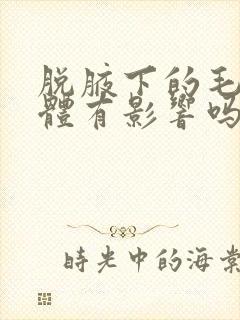 脱腋下的毛
體有影響吗
時光中的海棠